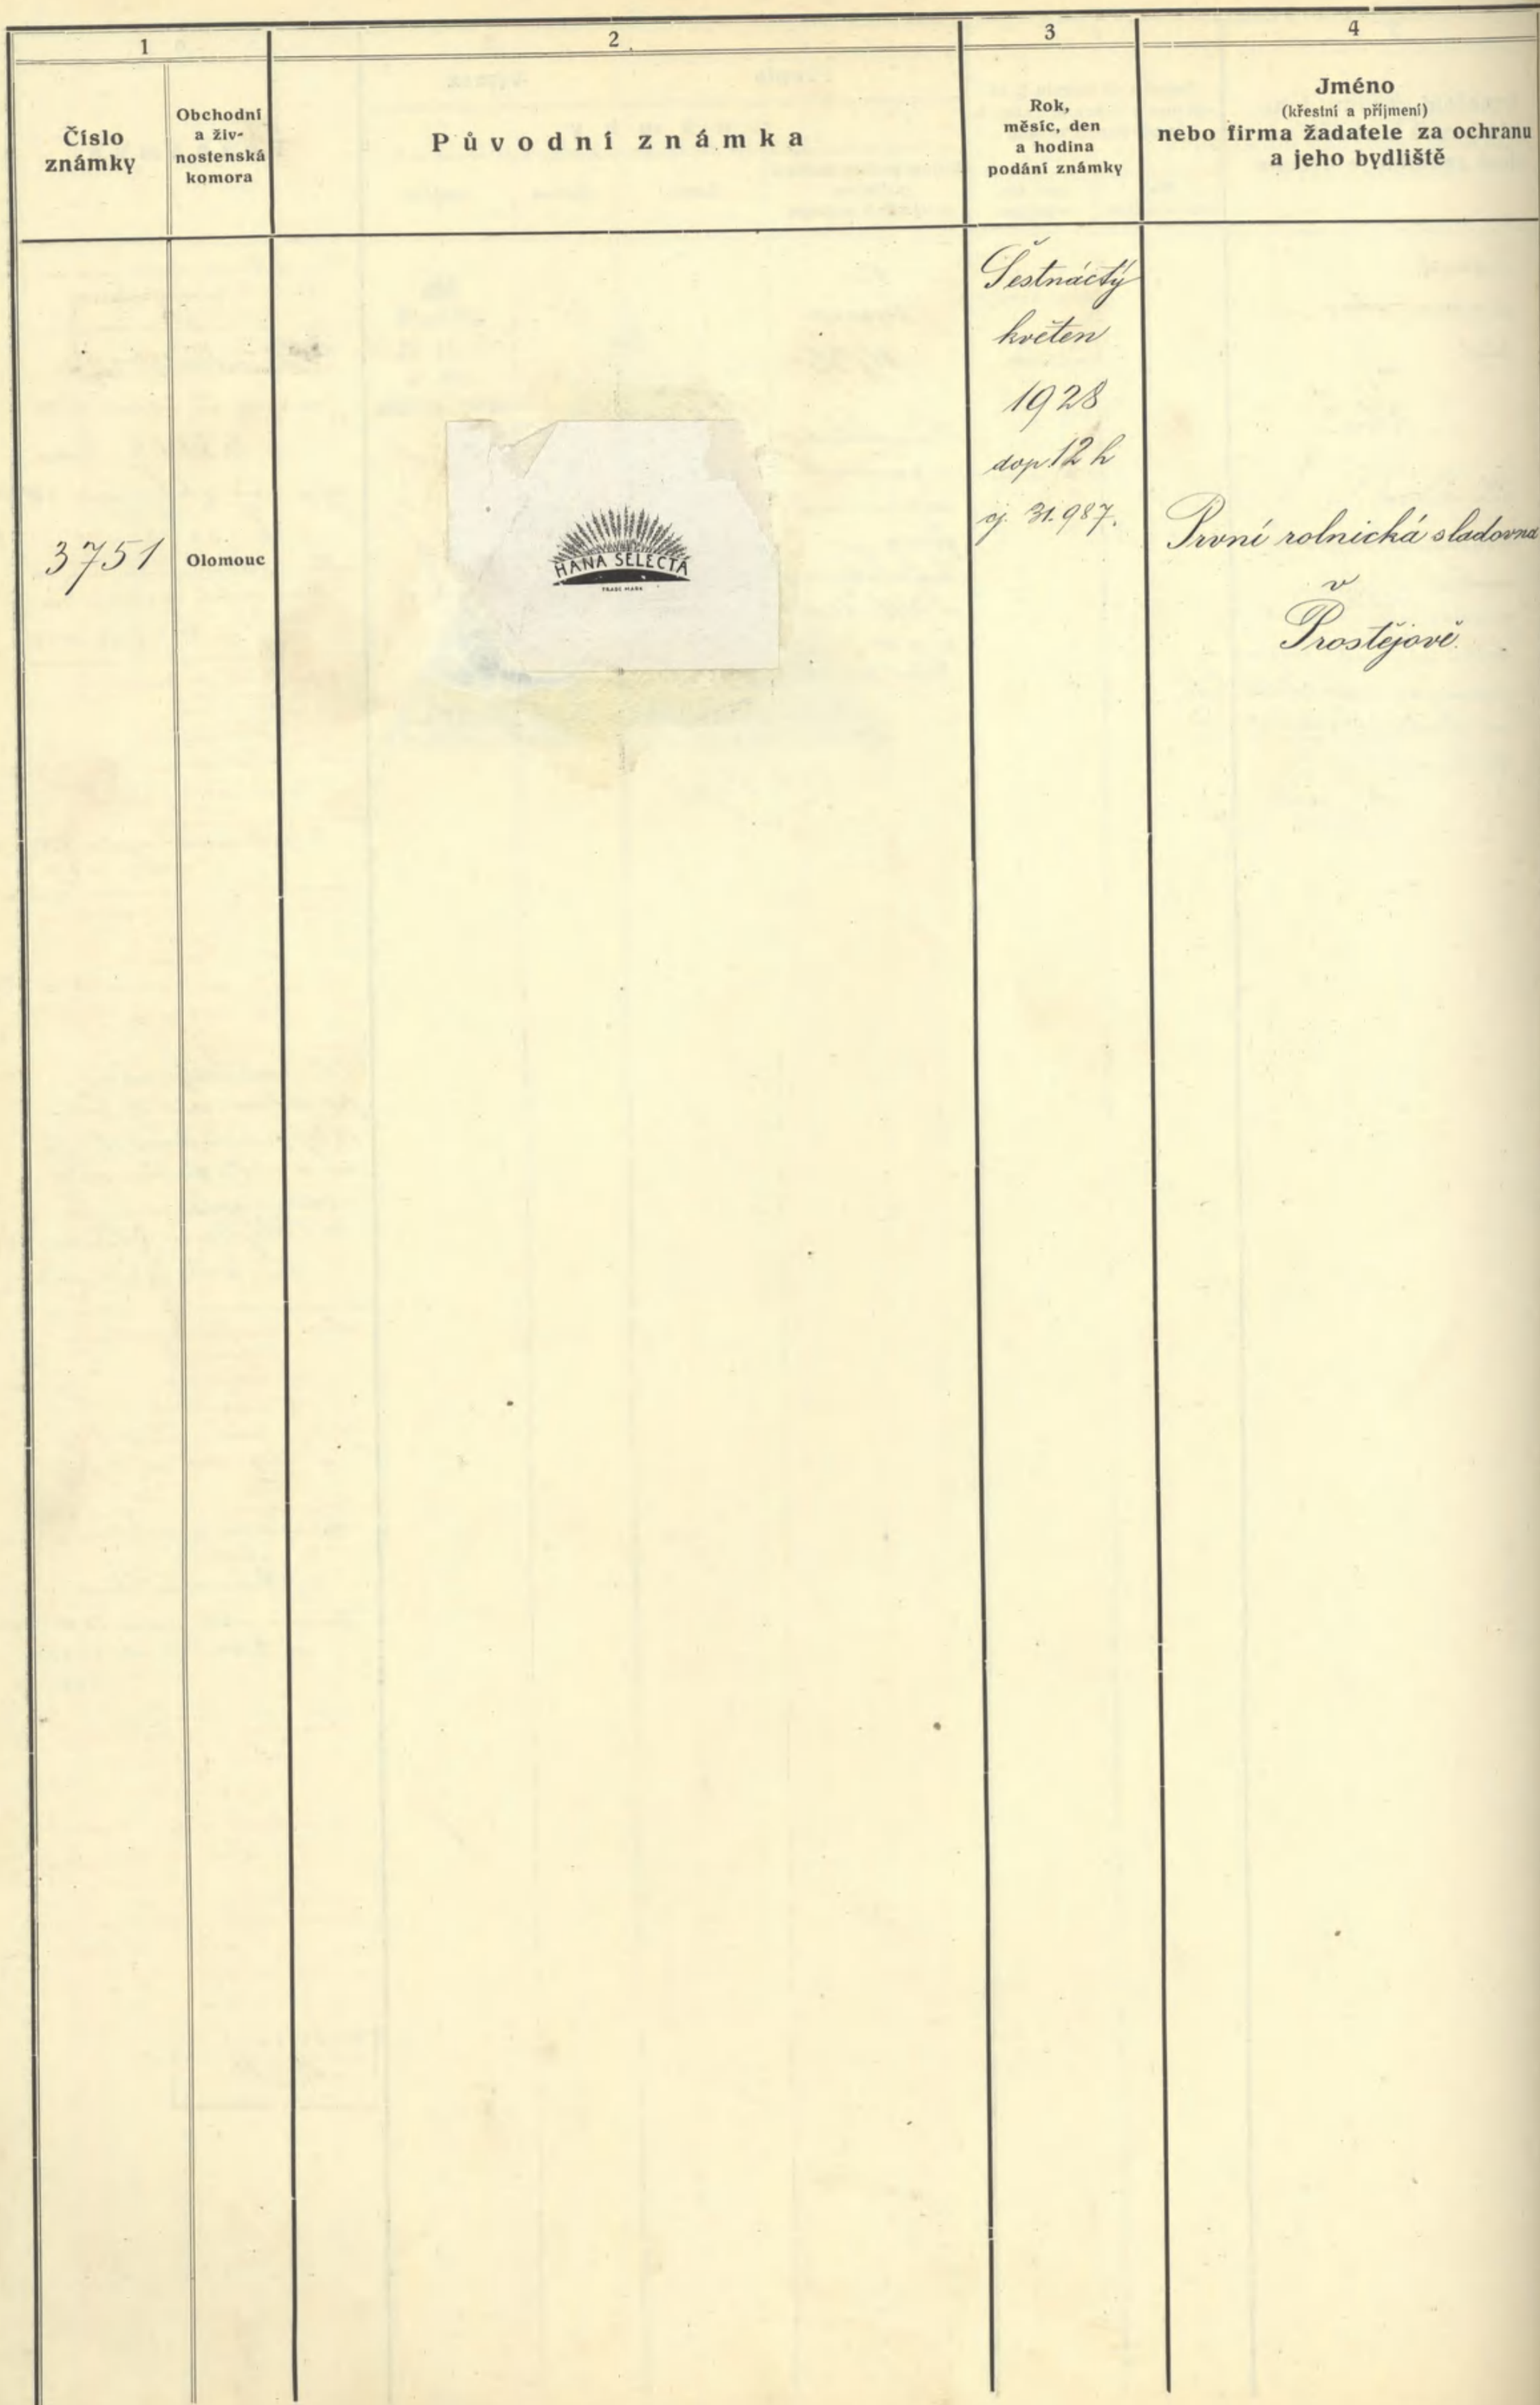 1
2
3
4
Číslo
známky
Obchodní
a živ-
nostenská
komora
Původní známka
Rok,
měsíc, den
a hodina
podání známky
Jméno
(křestní a příjmení)
nebo firma žadatele za ochranu
a jeho bydliště
3751
Olomouc
HANA SELECTA
TRADE MARK
Šestnáctý
květen
1928
dop. 12 h
čj. 31.987.
První rolnická sladovna
v
Prostějově.